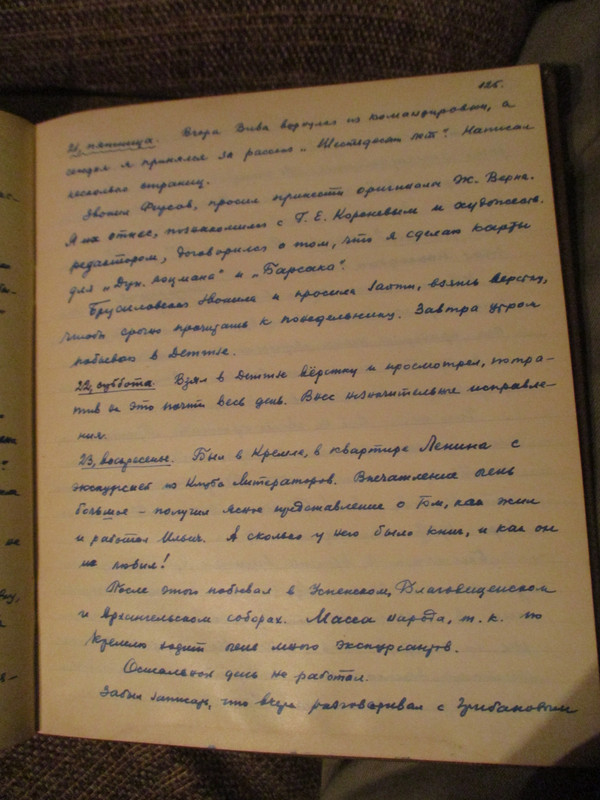 125.
21, пятница. Вчера Вива вернулся из командировки, а
сегодня я принялся за рассказ „Шестьдесят лет". Написал
несколько страниц.
Звонил Фирсов, просил принести оригиналы Ж. Верна.
Я их отнес, познакомился с Г. Е. Кореневым и художеств.
редактором, договорился о том, что я сделаю карты
для „Дун. лоцмана" и „Барсака".
Брусиловская звонила и просила зайти, взять верстку,
чтобы срочно прочитать к понедельнику. Завтра утром
побываю в Детгизе.
22, суббота. Взял в Детгизе вёрстку и просмотрел, потра-
тив на это почти весь день. Внес незначительные исправле-
ния.
23, воскресенье. Был в Кремле, в квартире Ленина с
экскурсией из Клуба Литераторов. Впечатление очень
большое – получил ясное представление о том, как жил
и работал Ильич. А сколько у него было книг, и как он
их любил!
После этого побывал в Успенском, Благовещенском
и Архангельском соборах. Масса народа, т. к. по
Кремлю ходит очень много экскурсантов.
Остальной день не работал.
Забыл записать, что вчера разговаривал с Грибановым